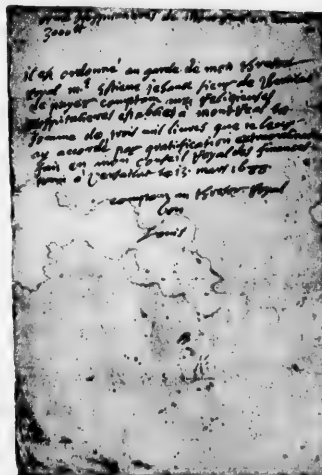 hospitalieres de
3000 ₶
il est ordonné au garde de mon thresor
royal mᵉ Estiene Jehanot sieur de
de payer comptant aux religieuses
hospitalieres establies a montreal la
somme de trois mil livres que je leur
ay accordé par gratification
fait en mon conseil royal des finances
tenu à le 13. mars
comptant au thresor royal
bon
Louis